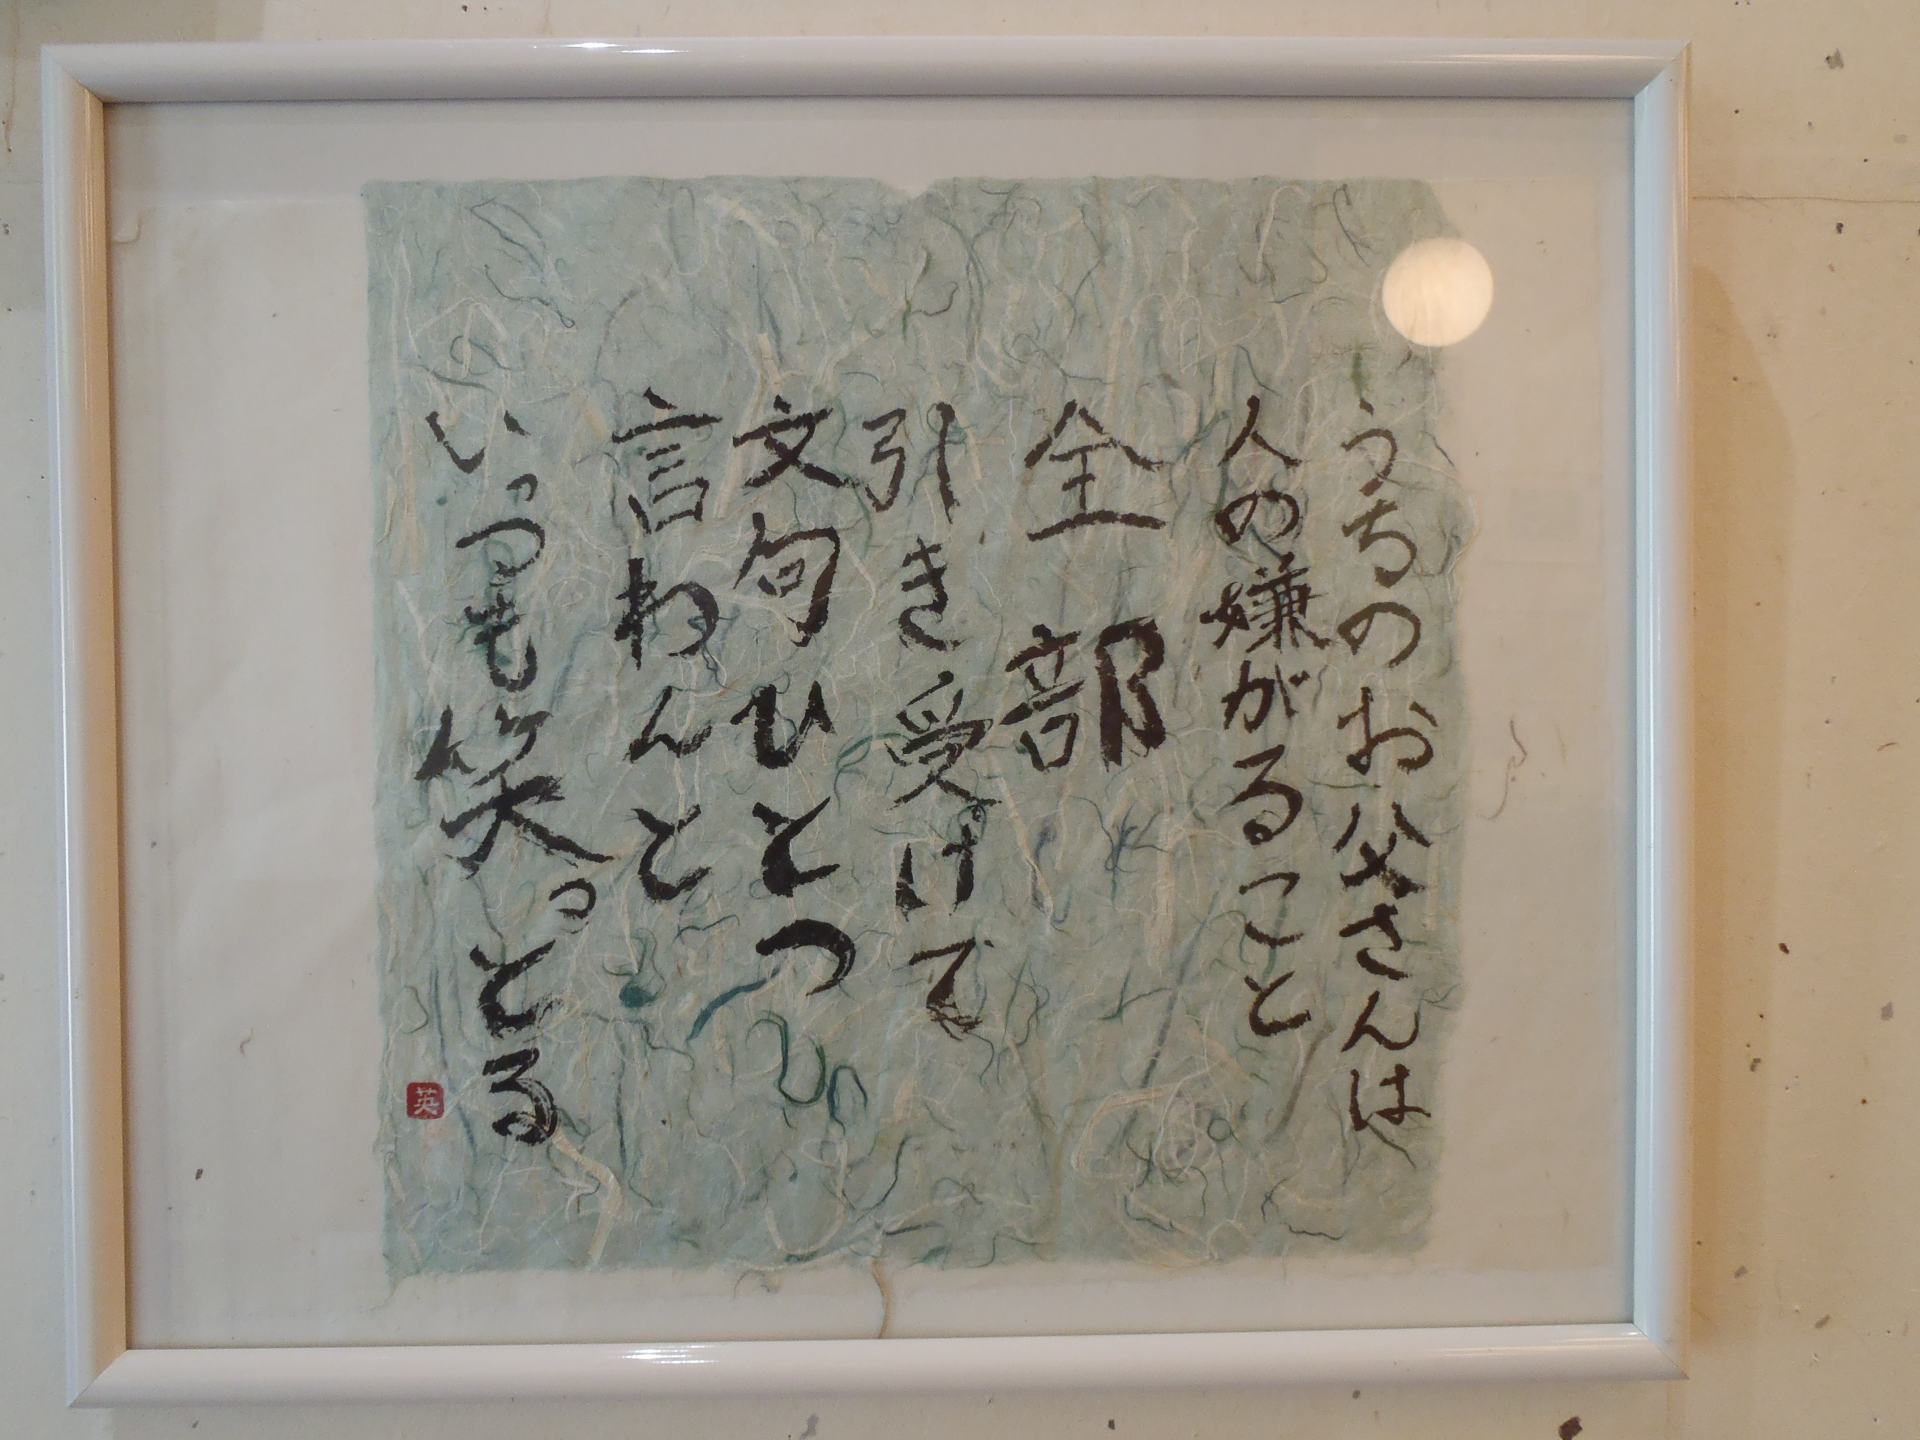 うちのお父さんは
人の嫌がること
全部
引き受けて
文句ひとつ
言わんと
いっつも笑っとる
英